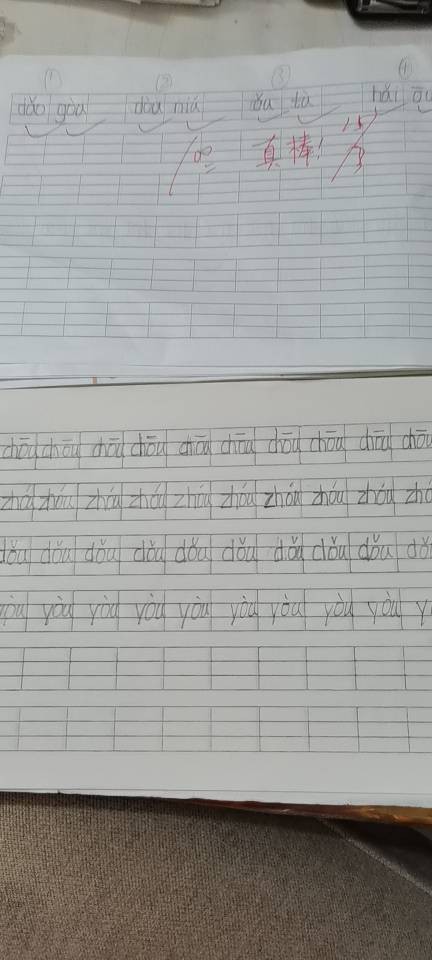 ① ② ③ ④
dǎo gòu dòu niú ǒu tù hǎi ōu
100 真棒! 15/3
chōu chōu chōu chōu chōu chōu chōu chōu chōu chōu
zhóu zhóu zhóu zhóu zhóu zhóu zhóu zhóu zhóu zhó
dǒu dǒu dǒu dǒu dǒu dǒu dǒu dǒu dǒu dǒ
yòu yòu yòu yòu yòu yòu yòu yòu yòu y